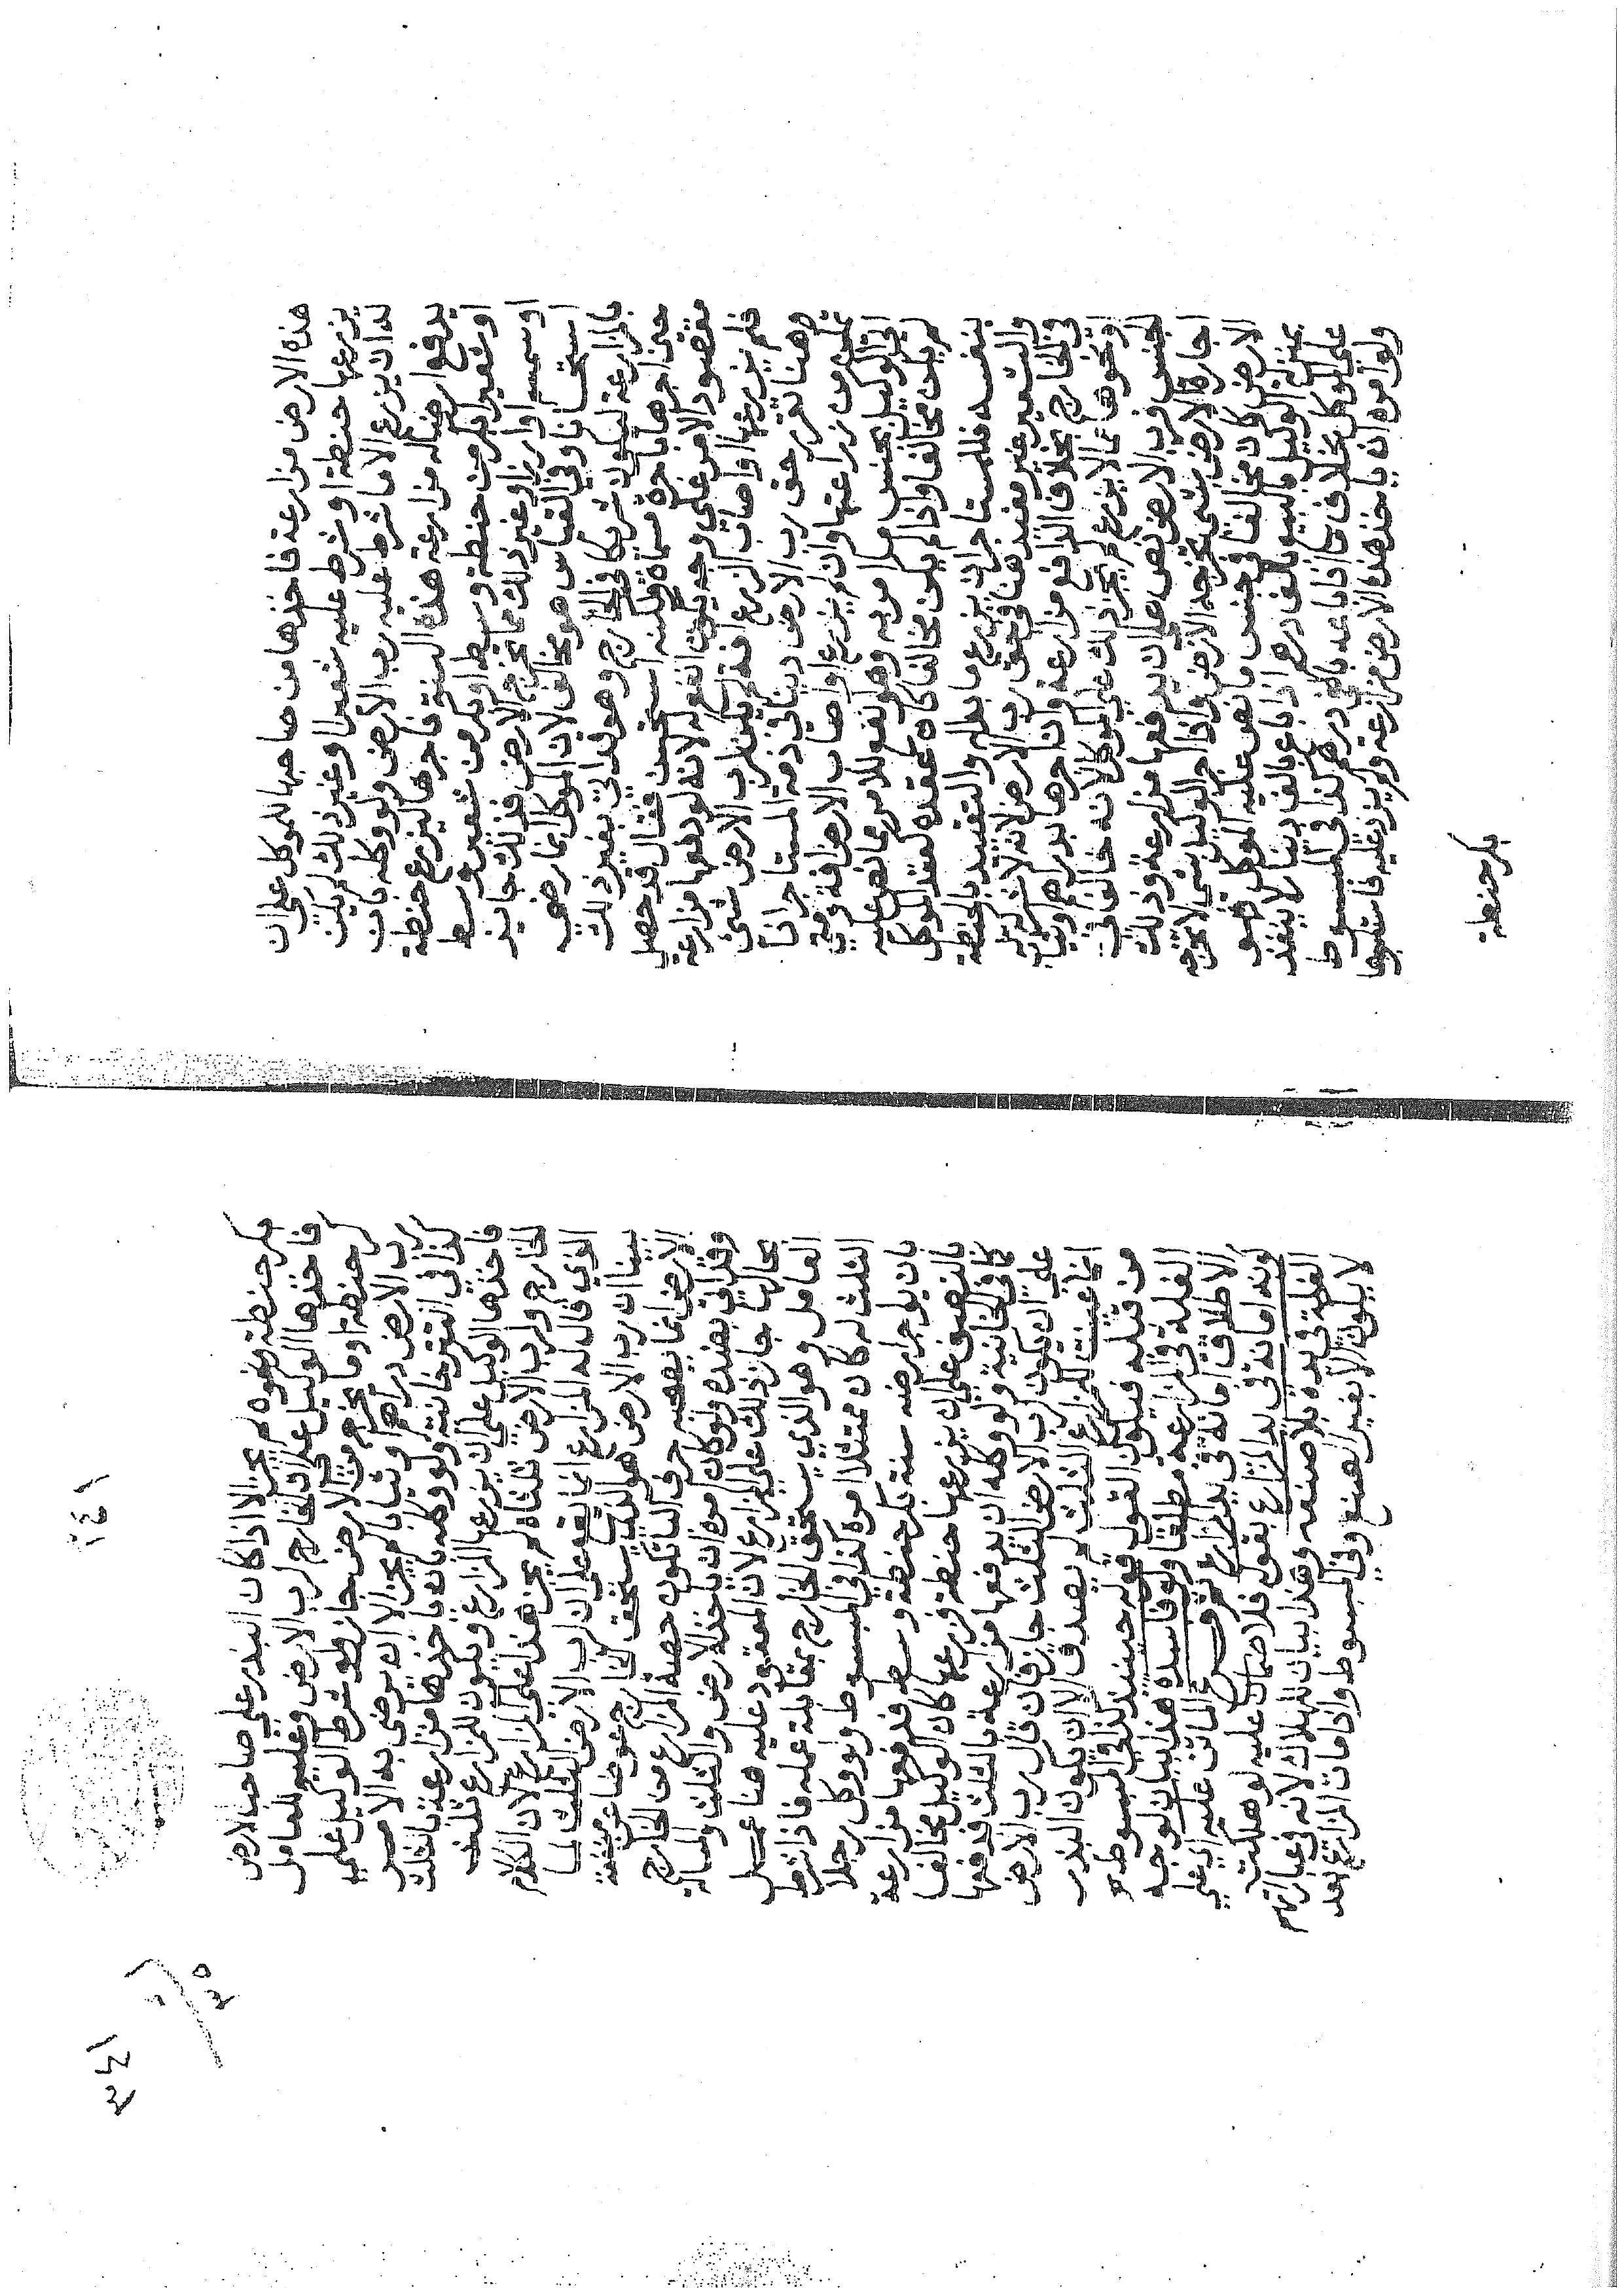 هذه الارض مزارعة فاخذها من صاحبها للموكل على ان
يزرعها حنطة او شرط عليه شعيرا او غير ذلك لم يكن
له ان يزرع الا ما شرط عليه رب الارض ولو وكله بان
يدفع ارضا له مزارعة هذه السنة فاجرها ليزرع حنطة
او شعيرا بكر من حنطة وسط او بكر من شعير وسط
او سمسم او ارز او غير ذلك مما تخرج الارض فذلك جايز
استحسانا وفي القياس هو مخالف لان الموكل انما رضي
بالمزارعة ليكون شريكا في الخارج وهو قد اتى بغير ذلك
حين اجرها باجرة مسماة ولكنه استحسن فقال قد حصل
مقصود الامر على وجه يكون انفع له لانه لو دفعها مزارعة
فلم يزرعها او اصاب الزرع افة لم يكن لرب الارض شئ
وهنا تقرر حق رب الارض دينا في ذمة المستاجر اذا
تمكن من زراعتها وان لم يزرع او اصاب الارض افة ومتى
اتى الوكيل بجنس ما امر به وهو انفع للامر مما نص عليه
لم يكن مخالفا واذا لم يكن مخالفا كان عقده كعقد الموكل
بنفسه فللمستاجر ان يزرع ما بدا له والتقييد بالحنطة
والشعير غير مفيد هنا في حق رب الارض لانه لا شركة له
في الخارج بخلاف الدفع مزارعة وان اجرها بدراهم او ثياب
او نحوها مما لا يزرع لم يجز ذلك على الموكل لانه خالف في
الجنس فرب الارض نص على ان يدفعها مزارعة وذلك
اجارة الارض بشئ تخرجه الارض واذا اجر الوكيل بشئ لا تخرجه
الارض كان مخالفا في جنس ما نص عليه الموكل فهو
بمنزلة الوكيل بالبيع بالف درهم اذا باع بالف دينار لا ينفذ
على الموكل بخلاف ما اذا باعه بالفي درهم كذا في المبسوط
ولو امره ان ياخذ هذه الارض مزارعة ولم يزد عليه فاستاجرها
بكر حنطة
١٤١
٢٤١
بكر حنطة ونحوه لم يجز الا اذا كان البذر على صاحب الارض
فاخذها الوكيل على ان الخارج لرب الارض وعليه للعامل
كر حنطة او ما يخرج من الارض جاز ولو شرط الوكيل على
رب الارض دراهم او ثيابا لم يجز الا ان يرضى به الامر
كذا في التتارخانية ولو وكله بان ياخذها مزارعة بالثلث
فاخذها الوكيل على ان يزرعها المزارع ويكون للمزارع ثلث
الخارج ولرب الارض ثلثاه لم يجز هذا على المزارع لان الكلام
الذي قال له المزارع انما يقع على ان لرب الارض الثلث لما
بينا ان رب الارض هو الذي يستحق الخارج عوضا عن منفعة
الارض انما يصحبه حرف الباء تكون حصة المزارع من الخارج
وقد اتى بضده ولو كان امره ان ياخذ الارض والثلث والمسالة
بحالها جاز ذلك على المزارع لان المعقود عليه هنا عمل
العامل وهو الذي يستحق الخارج بمقابلة عمله فاذا شرط
الثلث له كان ممتثلا امره كذا في المبسوط ولو وكل رجلا
بان يواجر ارضه سنة بكر حنطة وسط فدفعها مزارعة
بالنصف على ان يزرعها حنطة فزرعها كان الوكيل مخالفا
كما في الخانية ولو وكله ان يدفعها مزارعة بالثلث فدفعها
على ان يكون لرب الارض الثلث جاز فان قال رب الارض
انما عنيت للمزارع الثلث لم يصدق الا ان يكون البذر
من قبله فيكون القول قوله حينئذ كذا في المبسوط
الغلة في المزارعة مطلقا ولو فاسدة هذا بيان لوجه
الاطلاق امانة في يد المزارع تفريع المتن عليه اي على
كونه امانة في يد المزارع بقوله فلا ضمان عليه لو هلكت
الغلة في يده بلا صنعه وهذا بيان للهلاك لانه في عباراتهم
لا يكون الا بغير الصنع وفي المبسوط واذا مات المزارع بعد